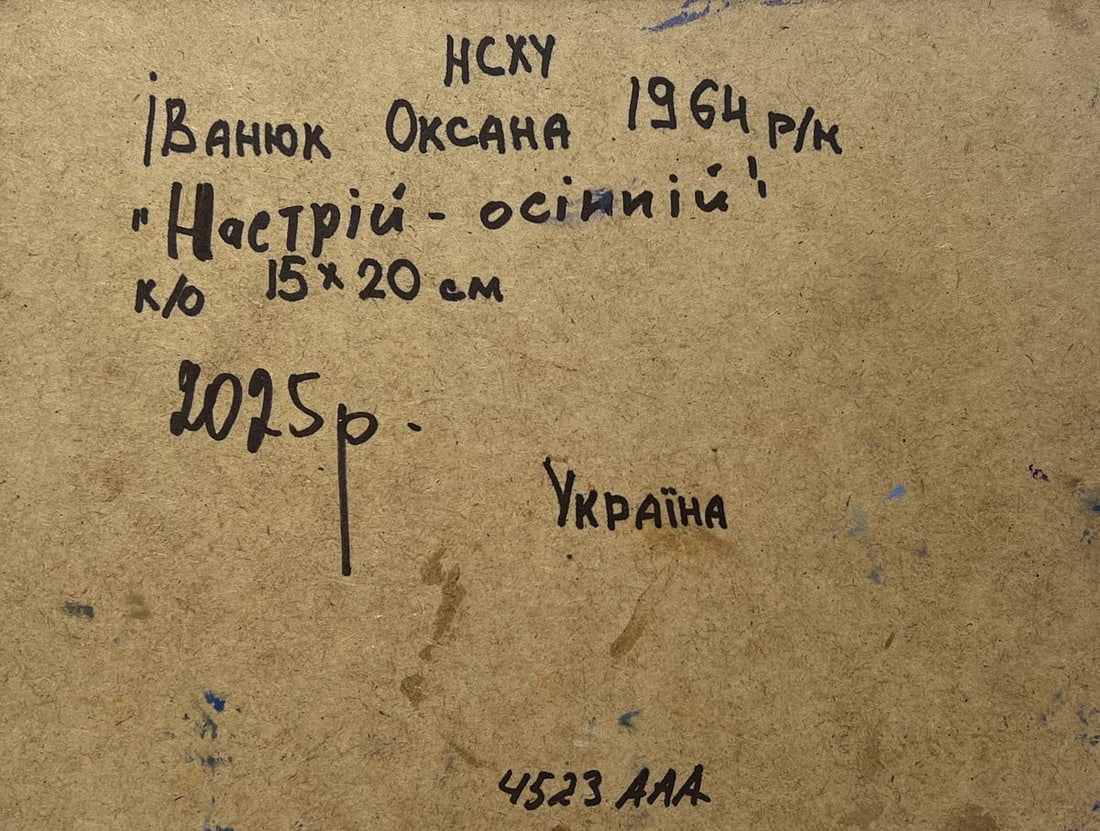 НСХУ
Іванюк Оксана 1964 р/н
"Настрій - осінній"
к/о 15х20 см
2025р.
Україна
4523 ААА